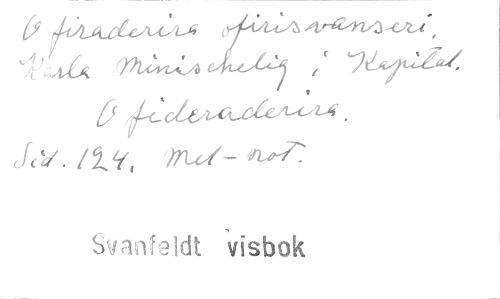 O firaderira ofirisvanseri.
Karla Minischelig i Kapital.
O fideraderira.
Sid. 124. Mel-not.
Svanfeldt visbok